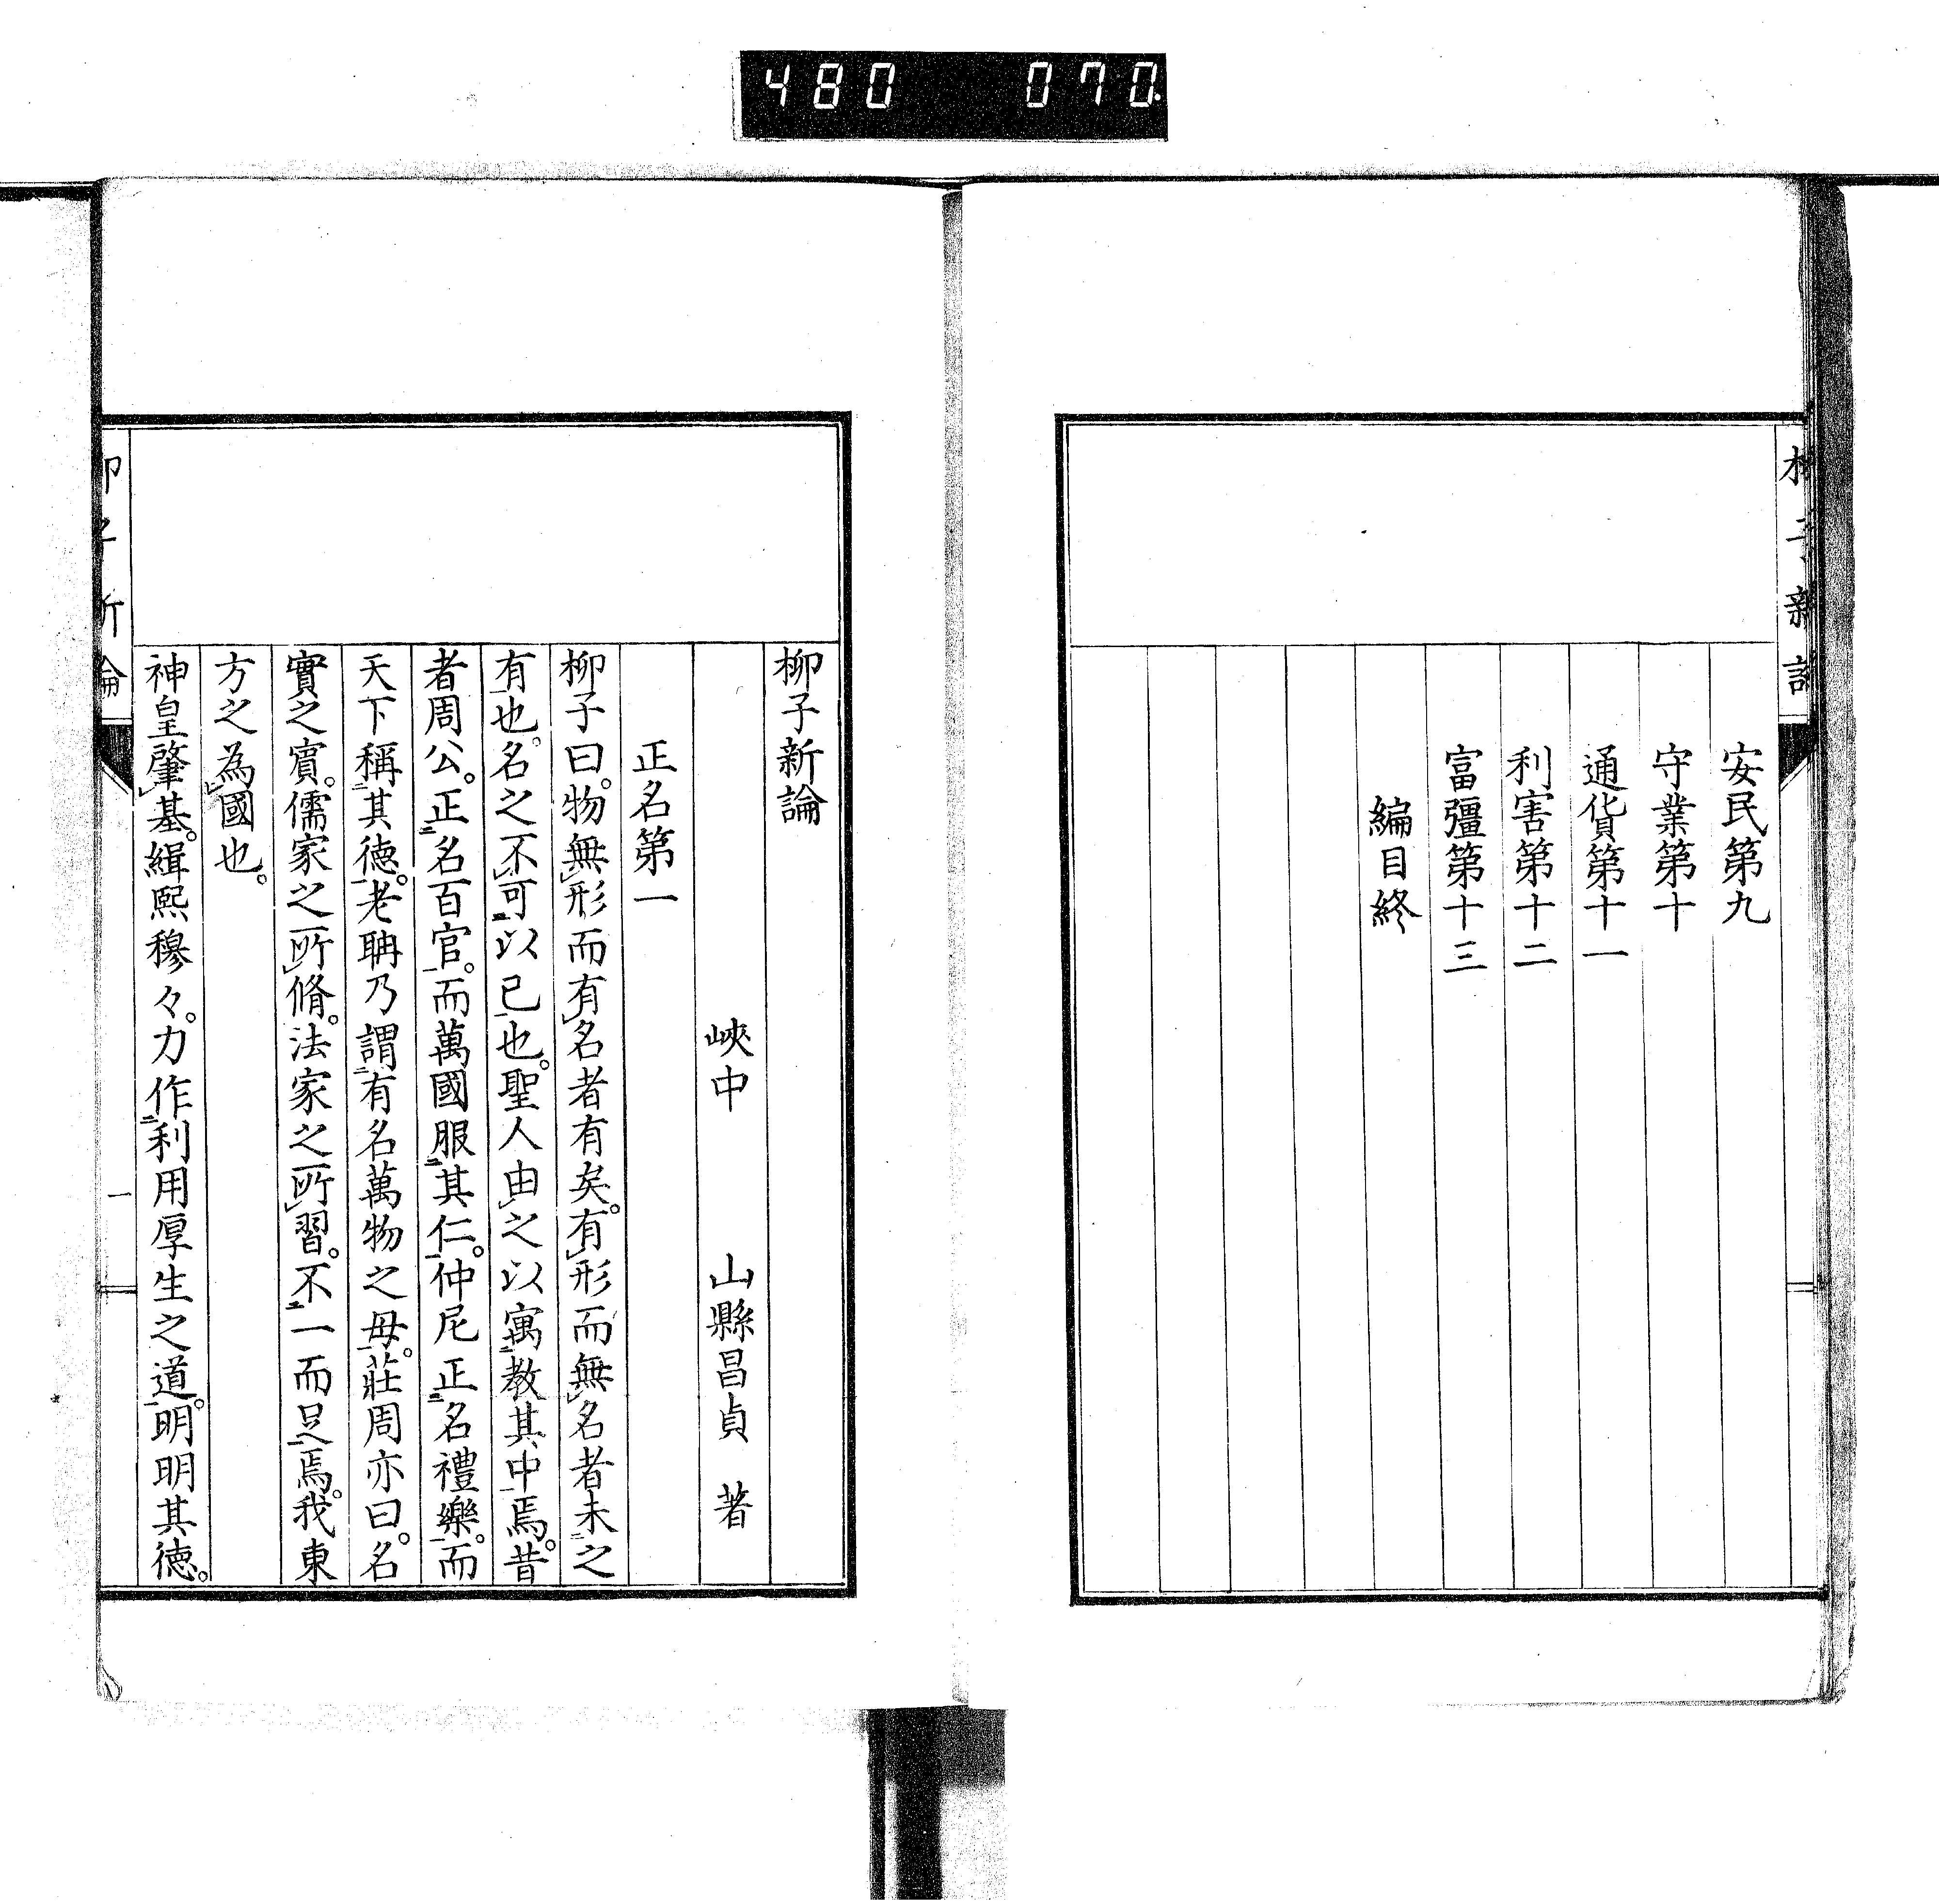 480 070.
柳子新論
安民第九
守業第十
通貨第十一
利害第十二
富彊第十三
編目終
柳子新論
峽中 山縣昌貞 著
正名第一
柳子曰。物無形而有名者有矣。有形而無名者未之
有也。名之不可以已也。聖人由之以寓教其中焉。昔
者周公。正名百官。而萬國服其仁。仲尼正名禮樂。而
天下稱其徳。老聃乃謂有名萬物之母。莊周亦曰。名
實之賓。儒家之所脩。法家之所習。不一而足焉。我東
方之為國也。
神皇肇基。緝熙穆々。力作利用厚生之道。明明其徳。
柳子新論
一